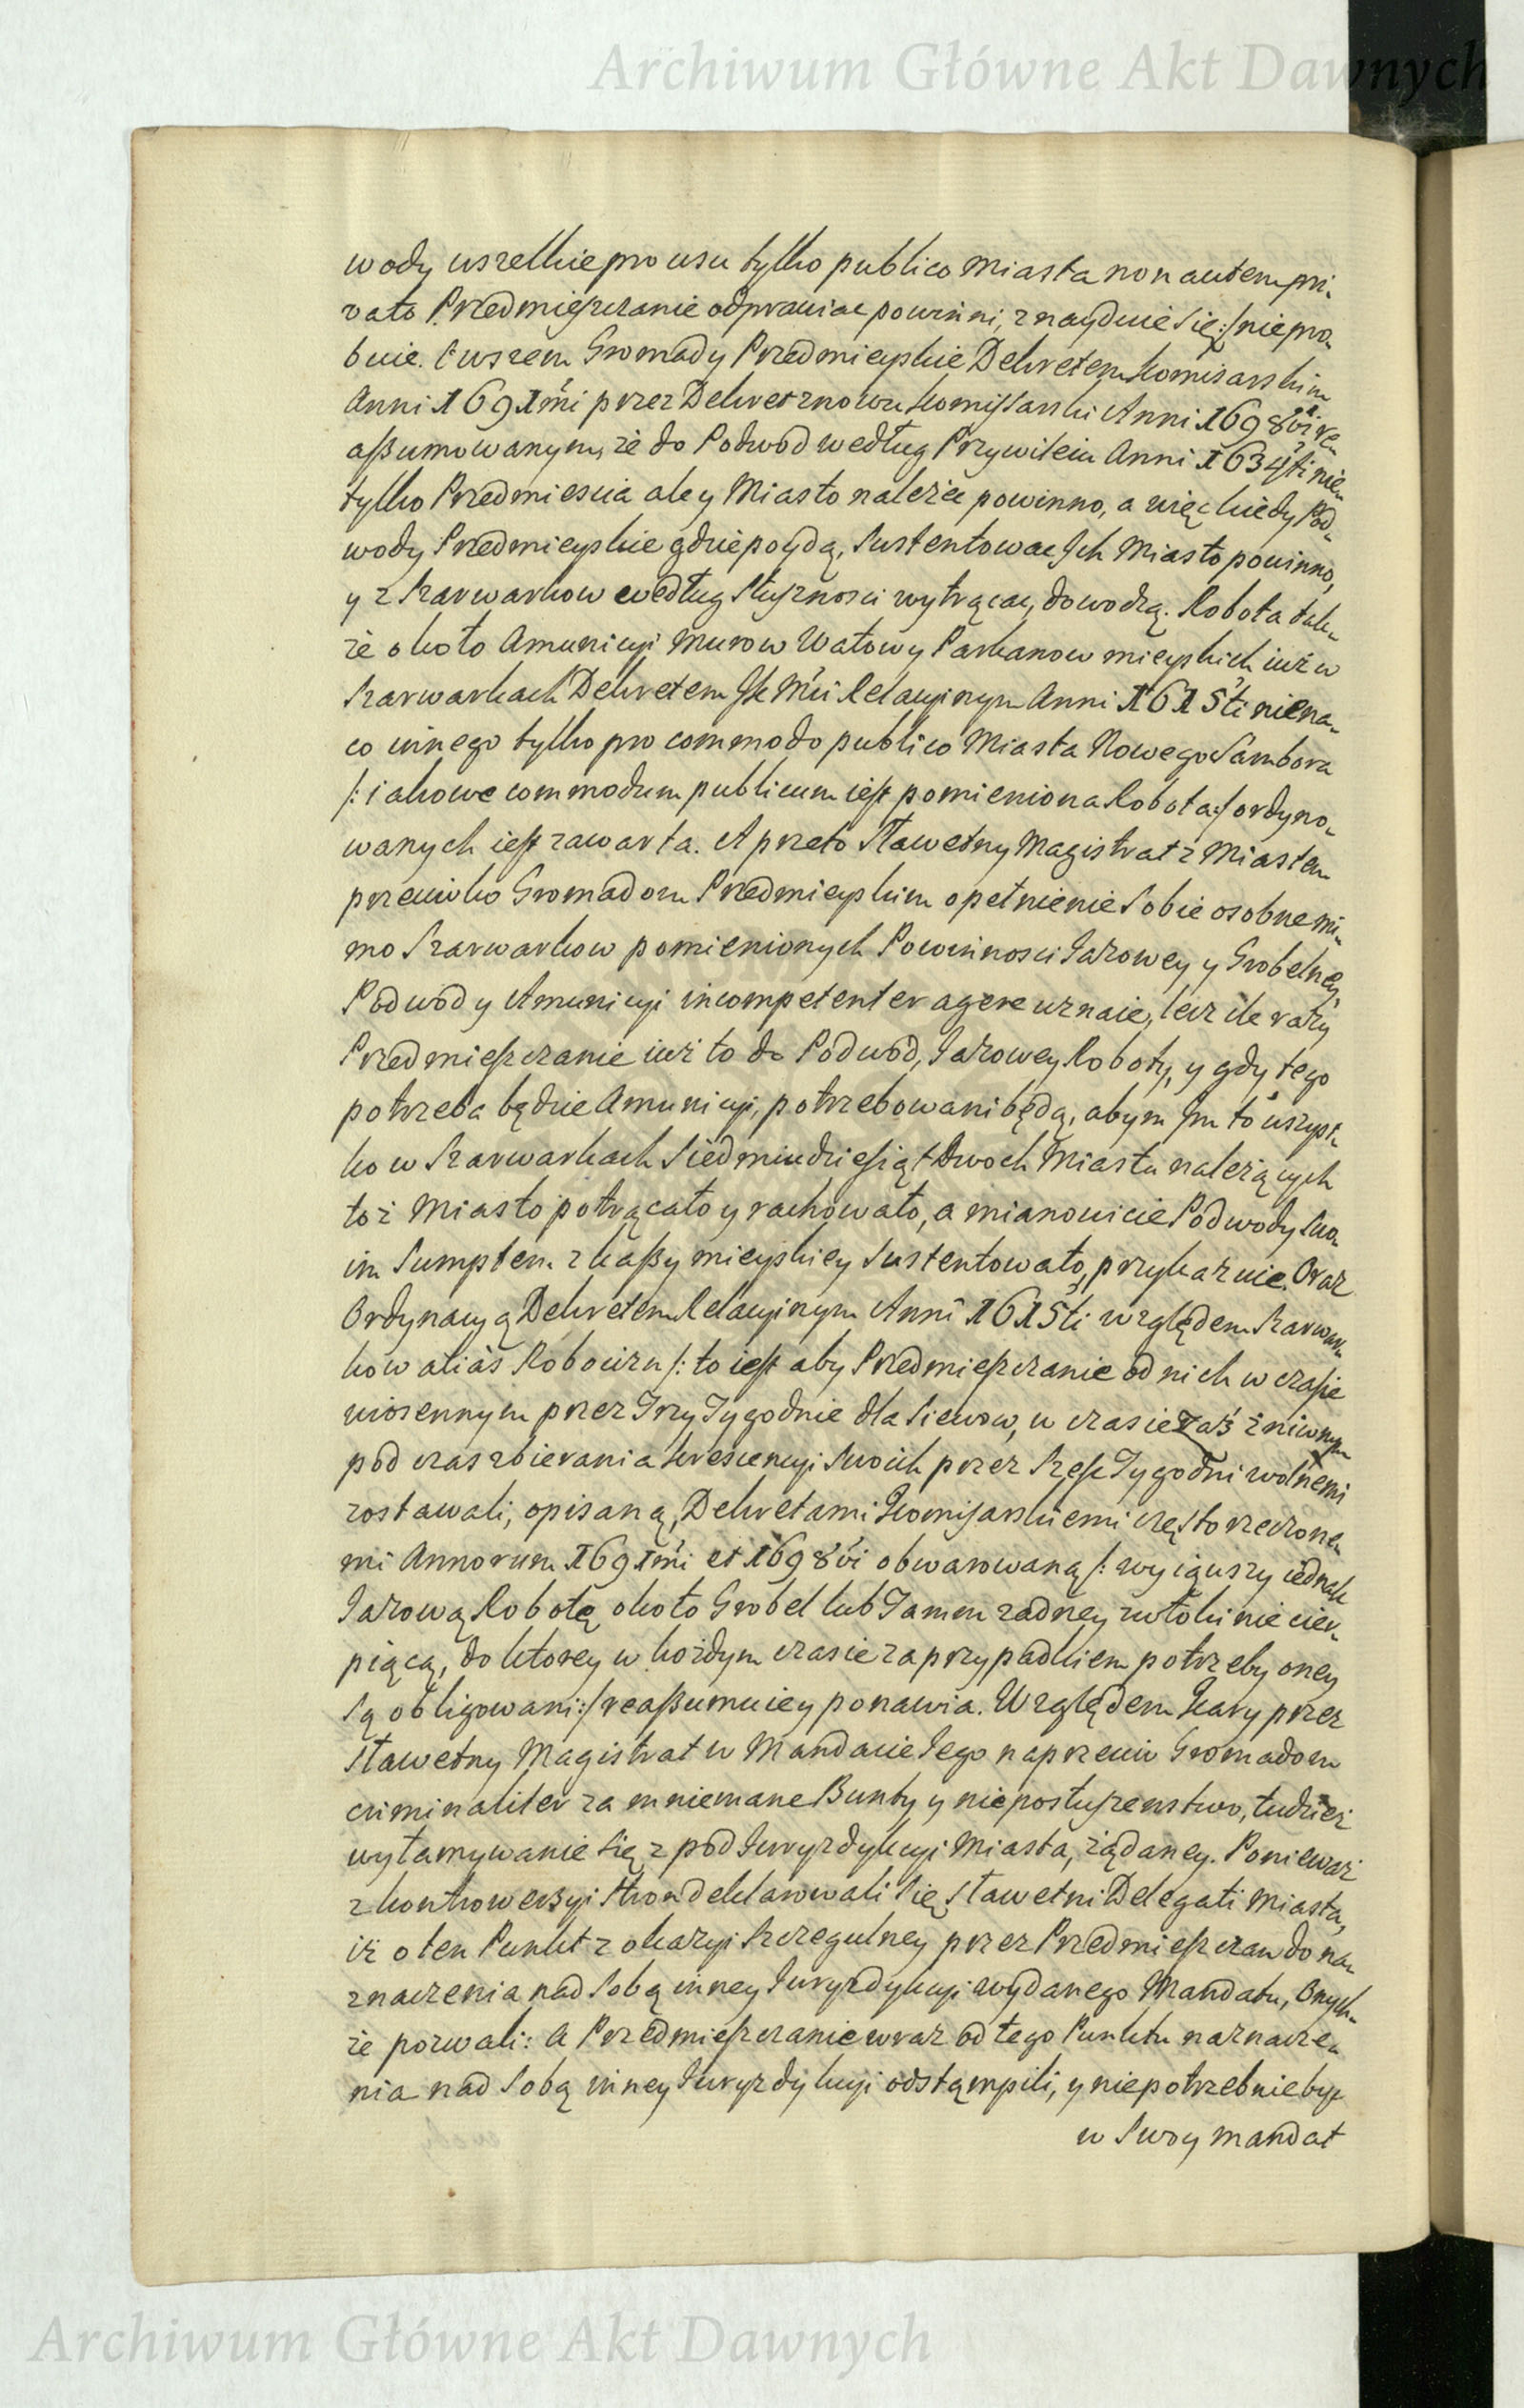 Archiwum Główne Akt Dawnych
wody wszelkie pro usu tylko publico Miasta non autem pri-
vato Przedmieszczanie odprawiac powinni, znayduie się:/ niepro-
buie. Owszem Gromady Przedmieyskie Dekretem Komisarskim
Anni 1691mi przez Dekret znowu Komissarski Anni 1698vi re-
assumowanym, że do Podwod według Przywileiu Anni 1634ti nie-
tylko Przedmiescia ale y Miasto należec powinno, a więc kiedy Pod-
wody Przedmieyskie gdzie poydą, Sustentowac Ich Miasto powinno,
y z Szarwarkow według Słuszności wytrącac, dowodzą. Robota tak-
że około Amunicyi Murow Wałow y Parkanow mieyskich iuż w
Szarwarkach Dekretem JK Mci Relacyinym Anni 1615ti niena-
co innego tylko pro commodo publico Miasta Nowego Sambora
/: iakowe commodum publicum iest pomieniona Robota:/ ordyno-
wanych iest zawarta. A przeto Sławetny Magistrat z Miastem
przeciwko Gromadom Przedmieyskim o pełnienie Sobie osobne mi-
mo Szarwarkow pomienionych Powinnosci Jazowey y Grobelney,
Podwod y Amunicyi incompetenter agere uznaie, lecz ile razy
Przedmieszczanie iuż to do Podwod, Jazowey Roboty, y gdy tego
potrzeba będzie Amunicyi, potrzebowani będą, aby im Im to wszyst-
ko w Szarwarkach Siedmiudziesiąt Dwoch Miastu należących
toż Miasto potrącało y rachowało, a mianowicie Podwody Swo-
im Sumptem z kassy mieyskiey Sustentowało, przykazuie. Oraz
Ordynacyą Dekretem Relacyinym Anni 1615ti względem Szarwar-
kow alias Robocizn /: to iest aby Przedmieszczanie od nich w czasie
wiosennym przez Trzy Tygodnie dla Siewow, w czasie zaś żniwnym
pod czas zbierania krescencyi Swoich przez Szesc Tygodni wolnemi
zostawali, opisaną, Dekretami Komissarskiemi często rzeczone-
mi Annorum 1691mi et 1698vi obwarowaną /: wyiąwszy iednak
Jazową Robotę około Grobel lub Tamm zadney zwłoki nie cier-
piącą, do ktorey w kożdym czasie za przypadkiem potrzeby oney
Są obligowani:/ reassumuie y ponawia. Względem Kary przez
Sławetny Magistrat w Mandacie Jego naprzeciw Gromadom
criminaliter za mniemane Bunty y nieposłuszenstwo, tudzież
wyłamywanie Się z pod Jurysdykcyi Miasta, żądaney. Ponieważ
z kontrowersyi Stron deklarowali Się Sławetni Delegati Miasta,
iż o ten Punkt z okazyi Szczegulney przez Przedmieszczan do na-
znaczenia nad Sobą inney Jurysdykcyi wydanego Mandatu, Onych-
że pozwali: A Przedmieszczanie wraz od tego Punktu naznacze-
nia nad Sobą inney Jurysdykcyi odstąmpili, y niepotrzebnie byc
w Swoy mandat
Archiwum Główne Akt Dawnych